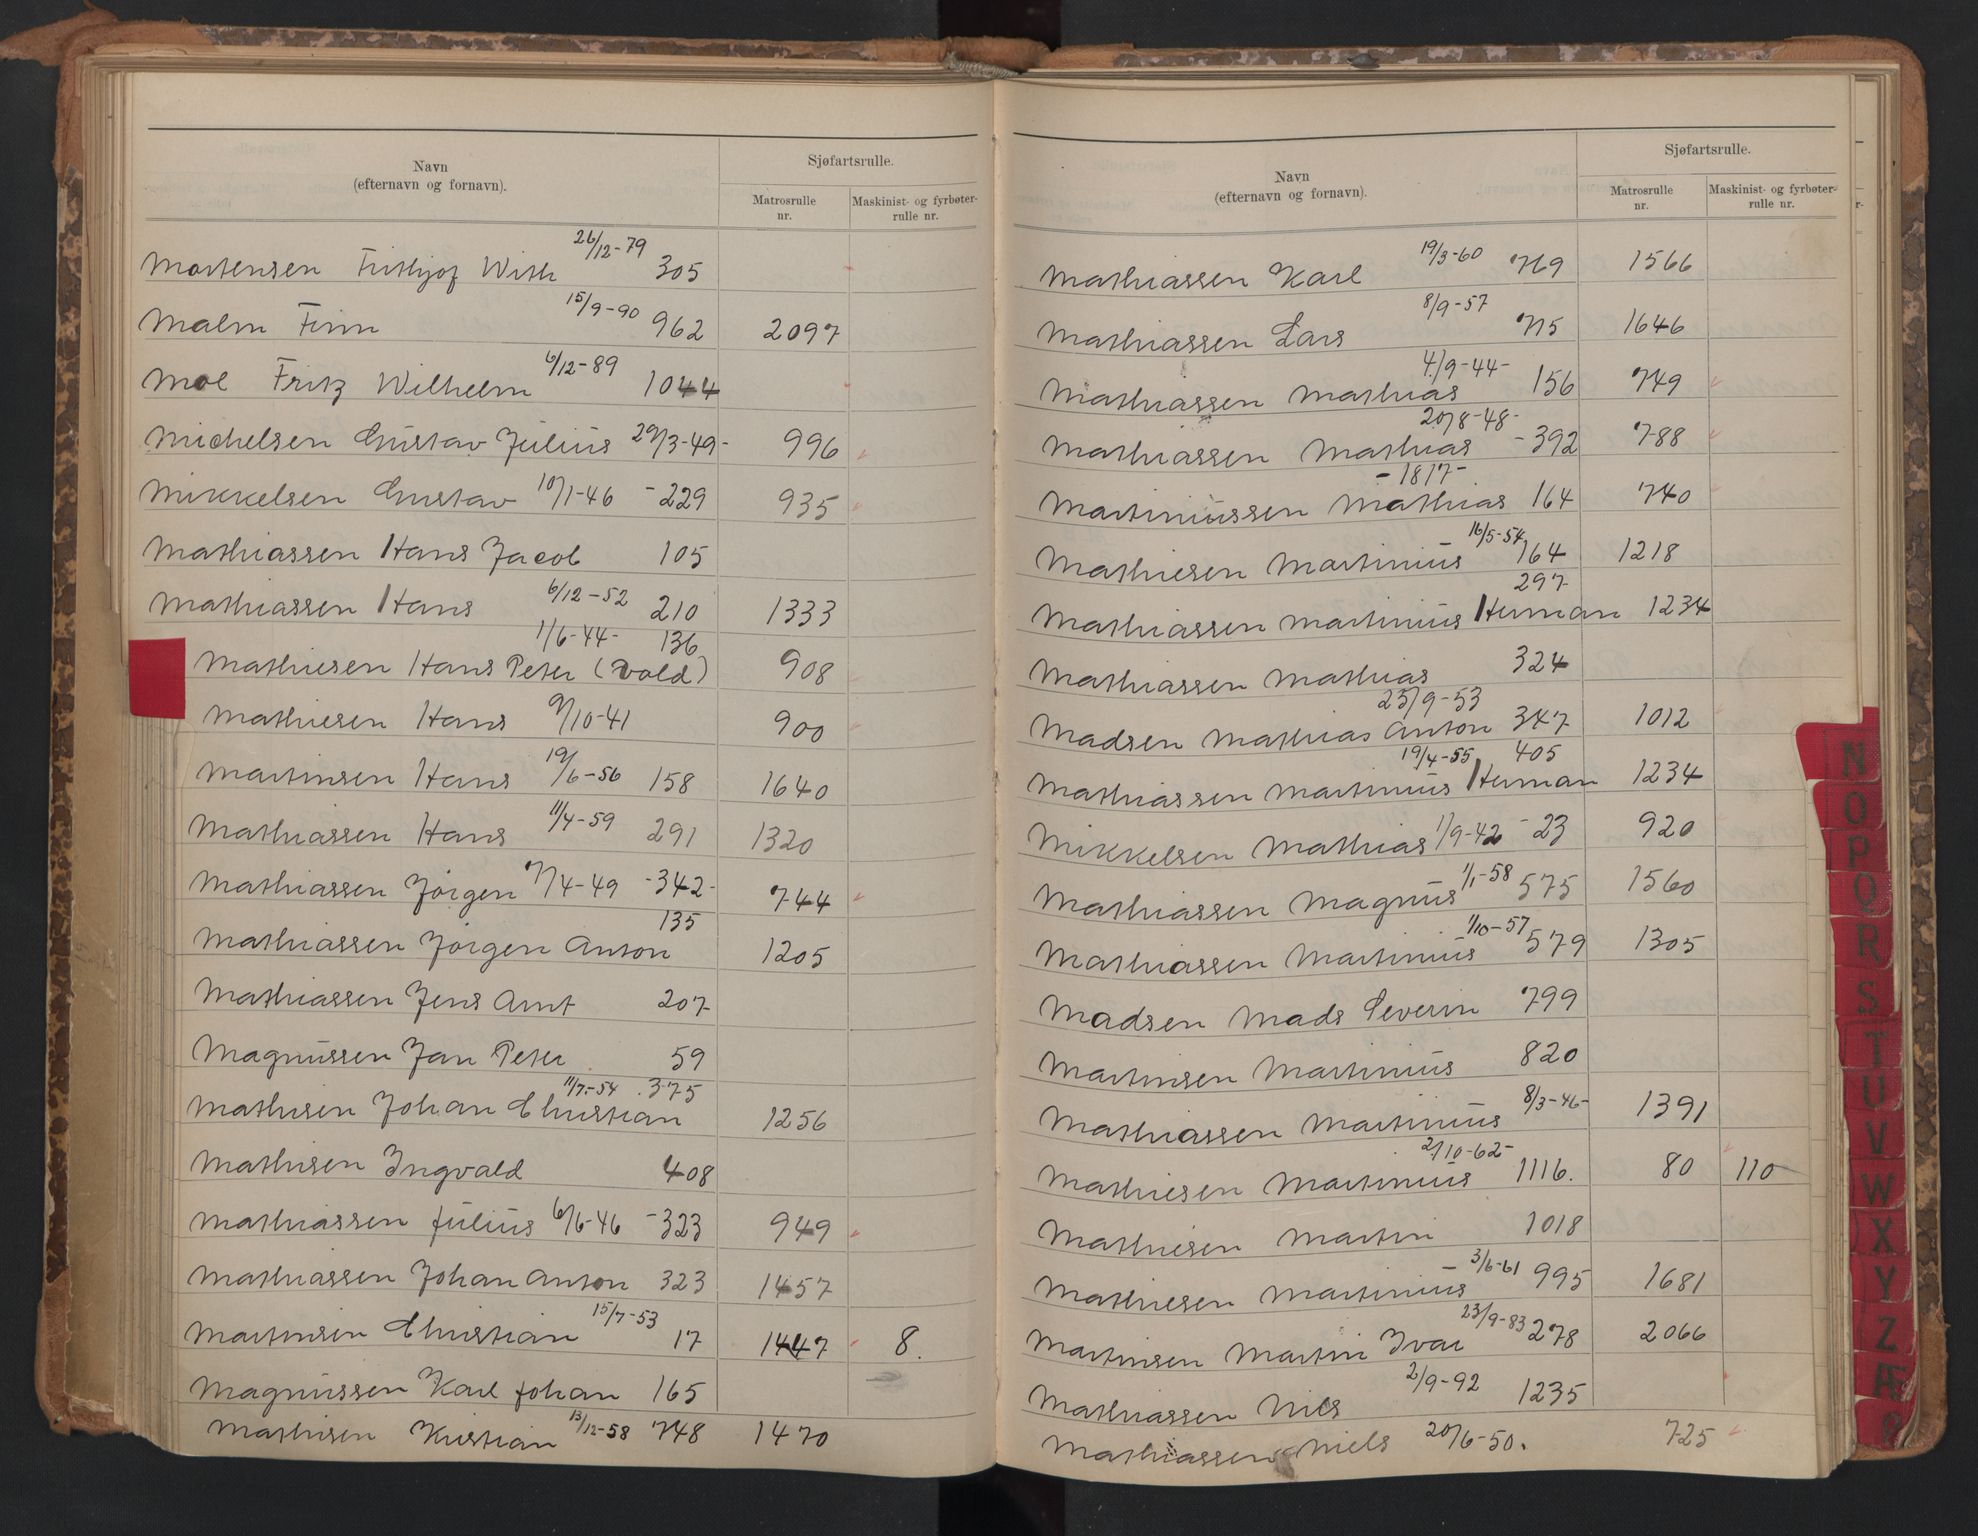 Navn
(efternavn og fornavn).
Sjøfartsrulle.
Matrosrulle
nr.
Maskinist- og fyrbøter-
rulle nr.
Mortensen Frithjof With 26/12-79 305
Malm Finn 15/9-90 962 2097
Mol Fritz Wilhelm 6/12-89 1044
Michelsen Gustav Julius 29/3-49- 996
Mikkelsen Gustav 10/1-46 -229 935
Mathiassen Hans Jacob 105
Mathiassen Hans 6/12-52 210 1333
Mathiesen Hans Peter (Vold) 1/6-44- 136 908
Mathiesen Hans 9/10-41 900
Martinsen Hans 19/6-56 158 1640
Mathiassen Hans 11/4-59 291 1320
Mathiassen Jörgen 7/4-49 -342- 744
Mathiassen Jörgen Anton 135 1205
Mathiassen Jens Arnt 207
Magnussen Jan Peter 59
Mathisen Johan Christian 11/7-54 375 1256
Mathisen Ingvald 408
Mathiassen Julius 6/6-46 -323 949
Mathiassen Johan Anton 323 1457
Martinsen Christian 15/7-53 17 1447 8.
Magnussen Karl Johan 165
Mathisen Kristian 13/12-58 748 1470
Navn
(efternavn og fornavn).
Sjøfartsrulle.
Matrosrulle
nr.
Maskinist- og fyrbøter-
rulle nr.
Mathiassen Karl 19/3-60 769 1566
Mathiassen Lars 8/9-57 715 1646
Mathiassen Mathias 4/9-44- 156 749
Mathiassen Mathias 20/8-48- -392 788
Martiniussen Mathias -1817- 164 740
Mathiesen Martinius 16/5-54 164 1218
Mathiassen Martinius Herman 297 1234
Mathiassen Mathias 324
Madsen Mathias Anton 23/9-53 347 1012
Mathiassen Martinius Herman 19/4-55 405 1234
Mikkelsen Mathias 1/9-42 -23 920
Mathiassen Magnus 1/1-58 575 1560
Mathiassen Martinius 1/10-57 579 1305
Madsen Mads Severin 799
Martinsen Martinius 820
Mathiassen Martinius 8/3-46- 1391
Mathiesen Martinius 2/10-62- 1116. 80 110
Mathiesen Martin 1018
Mathiesen Martinius 3/6-61 995 1681
Martinsen Martin Ivar 23/9-83 278 2066
Mathiassen Nils 2/9-92 1235
Mathiassen Niels 20/6-50. 725
N
O
P
Q
R
S
T
U
V
W
X
Y
Z
Æ